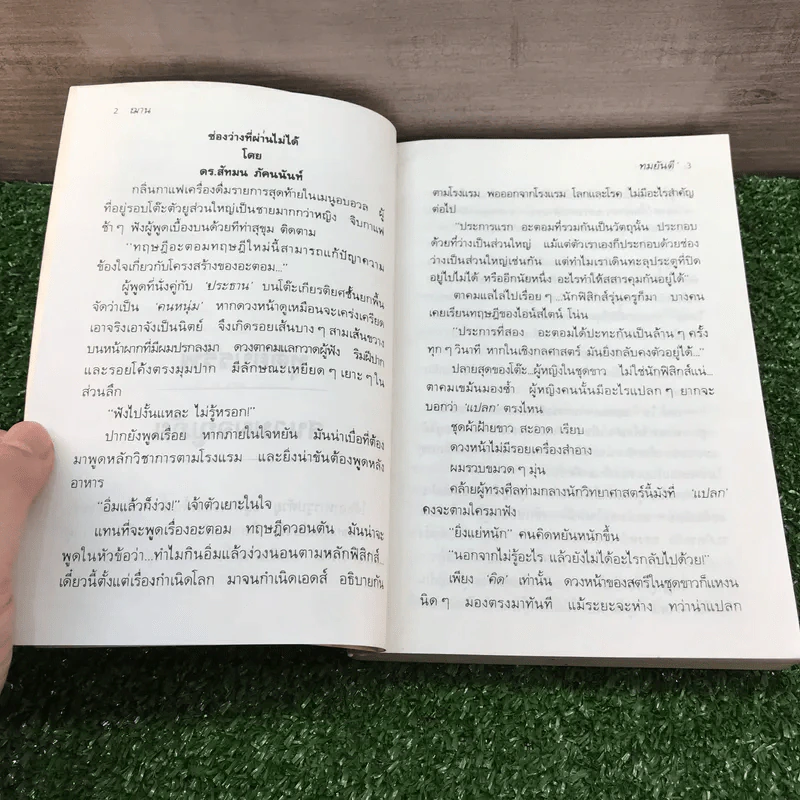 2 ฌาน
ช่องว่างที่ผ่านไม่ได้
โดย
ดร.สัทมน ภัคนนันท์
กลิ่นกาแฟเครื่องดื่มรายการสุดท้ายในเมนูอบอวล ผู้
ที่อยู่รอบโต๊ะตัวยูส่วนใหญ่เป็นชายมากกว่าหญิง จิบกาแฟ
ช้าๆ ฟังผู้พูดเบื้องบนด้วยทีท่าสุขุม ติดตาม
“ทฤษฎีอะตอมทฤษฎีใหม่นี้สามารถแก้ปัญหาความ
ข้องใจเกี่ยวกับโครงสร้างของอะตอม...”
ผู้พูดที่นั่งคู่กับ ‘ประธาน’ บนโต๊ะเกียรติยศชั้นยกพื้น
จัดว่าเป็น ‘คนหนุ่ม’ หากดวงหน้าดูเหมือนจะเคร่งเครียด
เอาจริงเอาจังเป็นนิตย์ จึงเกิดรอยเส้นบางๆ สามเส้นขวาง
บนหน้าผากที่มีผมปรกลงมา ดวงตาคมแลกวาดผู้ฟัง ริมฝีปาก
และรอยโค้งตรงมุมปาก มีลักษณะเหยียดๆ เยาะๆ ใน
ส่วนลึก
“ฟังไปงั้นแหละ ไม่รู้หรอก!”
ปากยังพูดเรื่อย หากภายในใจหยัน มันน่าเบื่อที่ต้อง
มาพูดหลักวิชาการตามโรงแรม และยิ่งน่าขันต้องพูดหลัง
อาหาร
“อิ่มแล้วก็ง่วง!” เจ้าตัวเยาะในใจ
แทนที่จะพูดเรื่องอะตอม ทฤษฎีควอนตัน มันน่าจะ
พูดในหัวข้อว่า...ทำไมกินอิ่มแล้วง่วงนอนตามหลักฟิสิกส์...
เดี๋ยวนี้ตั้งแต่เรื่องกำเนิดโลก มาจนกำเนิดเอดส์ อธิบายกัน
ทมยันตี 3
ตามโรงแรม พอออกจากโรงแรม โลกและโรค ไม่มีอะไรสำคัญ
ต่อไป
“ประการแรก อะตอมที่รวมกันเป็นวัตถุนั้น ประกอบ
ด้วยที่ว่างเป็นส่วนใหญ่ แม้แต่ตัวเราเองก็ประกอบด้วยช่อง
ว่างเป็นส่วนใหญ่เช่นกัน แต่ทำไมเราเดินทะลุประตูที่ปิด
อยู่ไปไม่ได้ หรืออีกนัยหนึ่ง อะไรทำให้สสารคุมกันอยู่ได้”
ตาคมแลไล่ไปเรื่อยๆ...นักฟิสิกส์รุ่นครูก็มา บางคน
เคยเรียนทฤษฎีของไอน์สไตน์ โน่น
“ประการที่สอง อะตอมได้ปะทะกันเป็นล้านๆ ครั้ง
ทุกๆ วินาที หากในเชิงกลศาสตร์ มันยังกลับคงตัวอยู่ได้...”
ปลายสุดของโต๊ะ...ผู้หญิงในชุดขาว ไม่ใช่นักฟิสิกส์แน่...
ตาคมเขม้นมองซ้ำ ผู้หญิงคนนั้นมีอะไรแปลกๆ ยากจะ
บอกว่า ‘แปลก’ ตรงไหน
ชุดผ้าฝ้ายขาว สะอาด เรียบ
ดวงหน้าไม่มีรอยเครื่องสำอาง
ผมรวบขมวดๆ มุ่น
คล้ายผู้ทรงศีลท่ามกลางนักวิทยาศาสตร์นี้มังที่ ‘แปลก’
คงจะตามใครมาฟัง
“ยิ่งแย่หนัก” คนคิดหยันหนักขึ้น
“นอกจากไม่รู้อะไร แล้วยังไม่ได้อะไรกลับไปด้วย!”
เพียง ‘คิด’ เท่านั้น ดวงหน้าของสตรีในชุดขาวก็แหงน
นิดๆ มองตรงมาทันที แม้ระยะจะห่าง ทว่าน่าแปลก